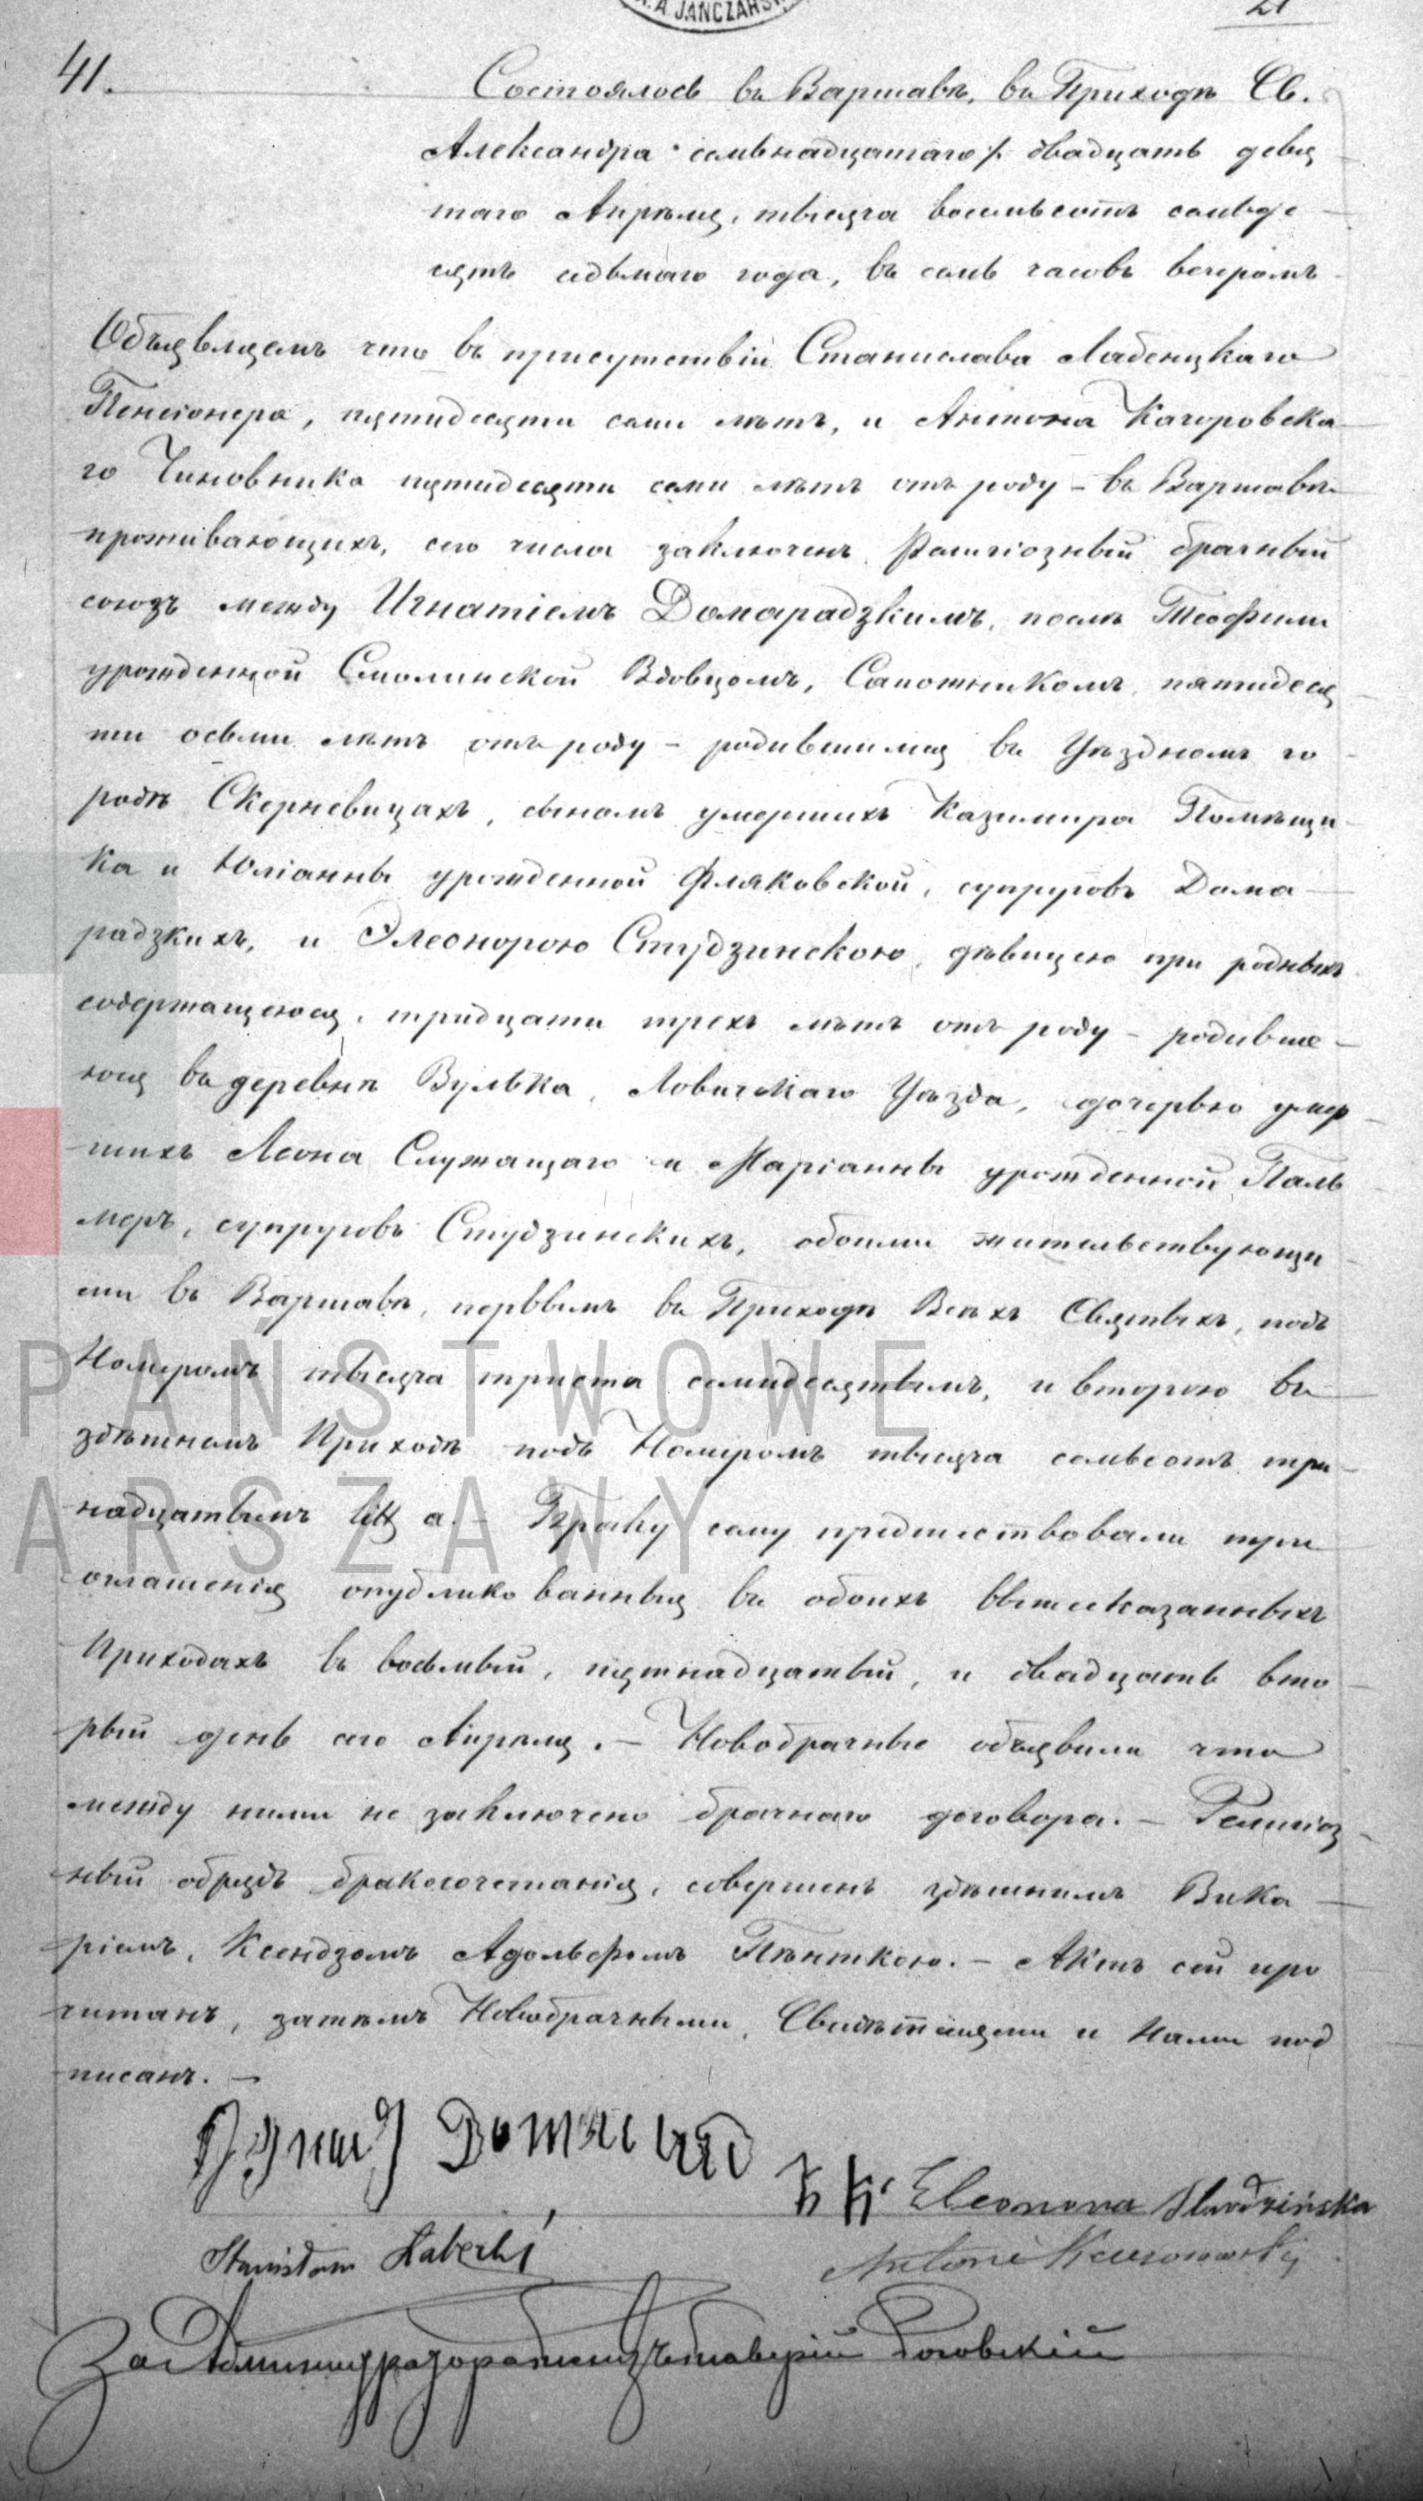 A. JANCZARSK
21
41.
Состоялось въ Варшавѣ, въ Приходѣ Св.
Александра семьнадцатаго /. двадцать девя
таго Апрѣля, тысяча восемьсотъ семьде
сятъ седьмаго года, въ семь часовъ вечеромъ
Объявляемъ что въ присутствіи Станислава Лабенцкаго
Пенсіонера, пятидесяти семи лѣтъ, и Антона Качоровска
го Чиновника пятидесяти семи лѣтъ отъ роду – въ Варшавѣ
проживающихъ, сего числа заключенъ Религіозный брачный
союзъ между Игнатіемъ Домарадзкимъ, послѣ Теофили
урожденной Смолинской Вдовцомъ, Сапожникомъ, пятидеся
ти осьми лѣтъ отъ роду – родившимся въ Уѣздномъ го
родѣ Скерневицахъ, сыномъ умершихъ Казимира Помѣщи
ка и Юліанны урожденной Фляковской, супруговъ Дома
радзкихъ, и Элеонорою Студзинскою, дѣвицею при родныхъ
содержащеюся, тридцати трехъ лѣтъ отъ роду – родивше
юся въ деревнѣ Вулька, Ловичскаго Уѣзда, дочерью умер
шихъ Леона Служащаго и Маріанны урожденной Паль
меръ, супруговъ Студзинскихъ, обоими жительствующи
ми въ Варшавѣ, первымъ въ Приходѣ Всѣхъ Святыхъ, подъ
Номеромъ тысяча триста семидесятымъ, и второю въ
здѣшнемъ Приходѣ подъ Номеромъ тысяча семьсотъ три
надцатымъ litt a. – Браку сему предшествовали три
оглашенія опубликованныя въ обоихъ вышесказанныхъ
Приходахъ въ восьмый, пятнадцатый, и двадцать вто
рый день сего Апрѣля. – Новобрачные объявили что
между ними не заключено брачнаго договора. – Религіоз
ный обрядъ бракосочетанія, совершенъ здѣшнимъ Вика
ріемъ, Ксендзомъ Адольфомъ Пѣнткою. – Актъ сей про
читанъ, затѣмъ Новобрачными, Свидѣтелями и Нами под
писанъ. –
Eleonora Studzińska
Stanisław Łabęcki
Antoni Kaczorowski
За Администратора Роговскій
PAŃSTWOWE
ARSZAWY